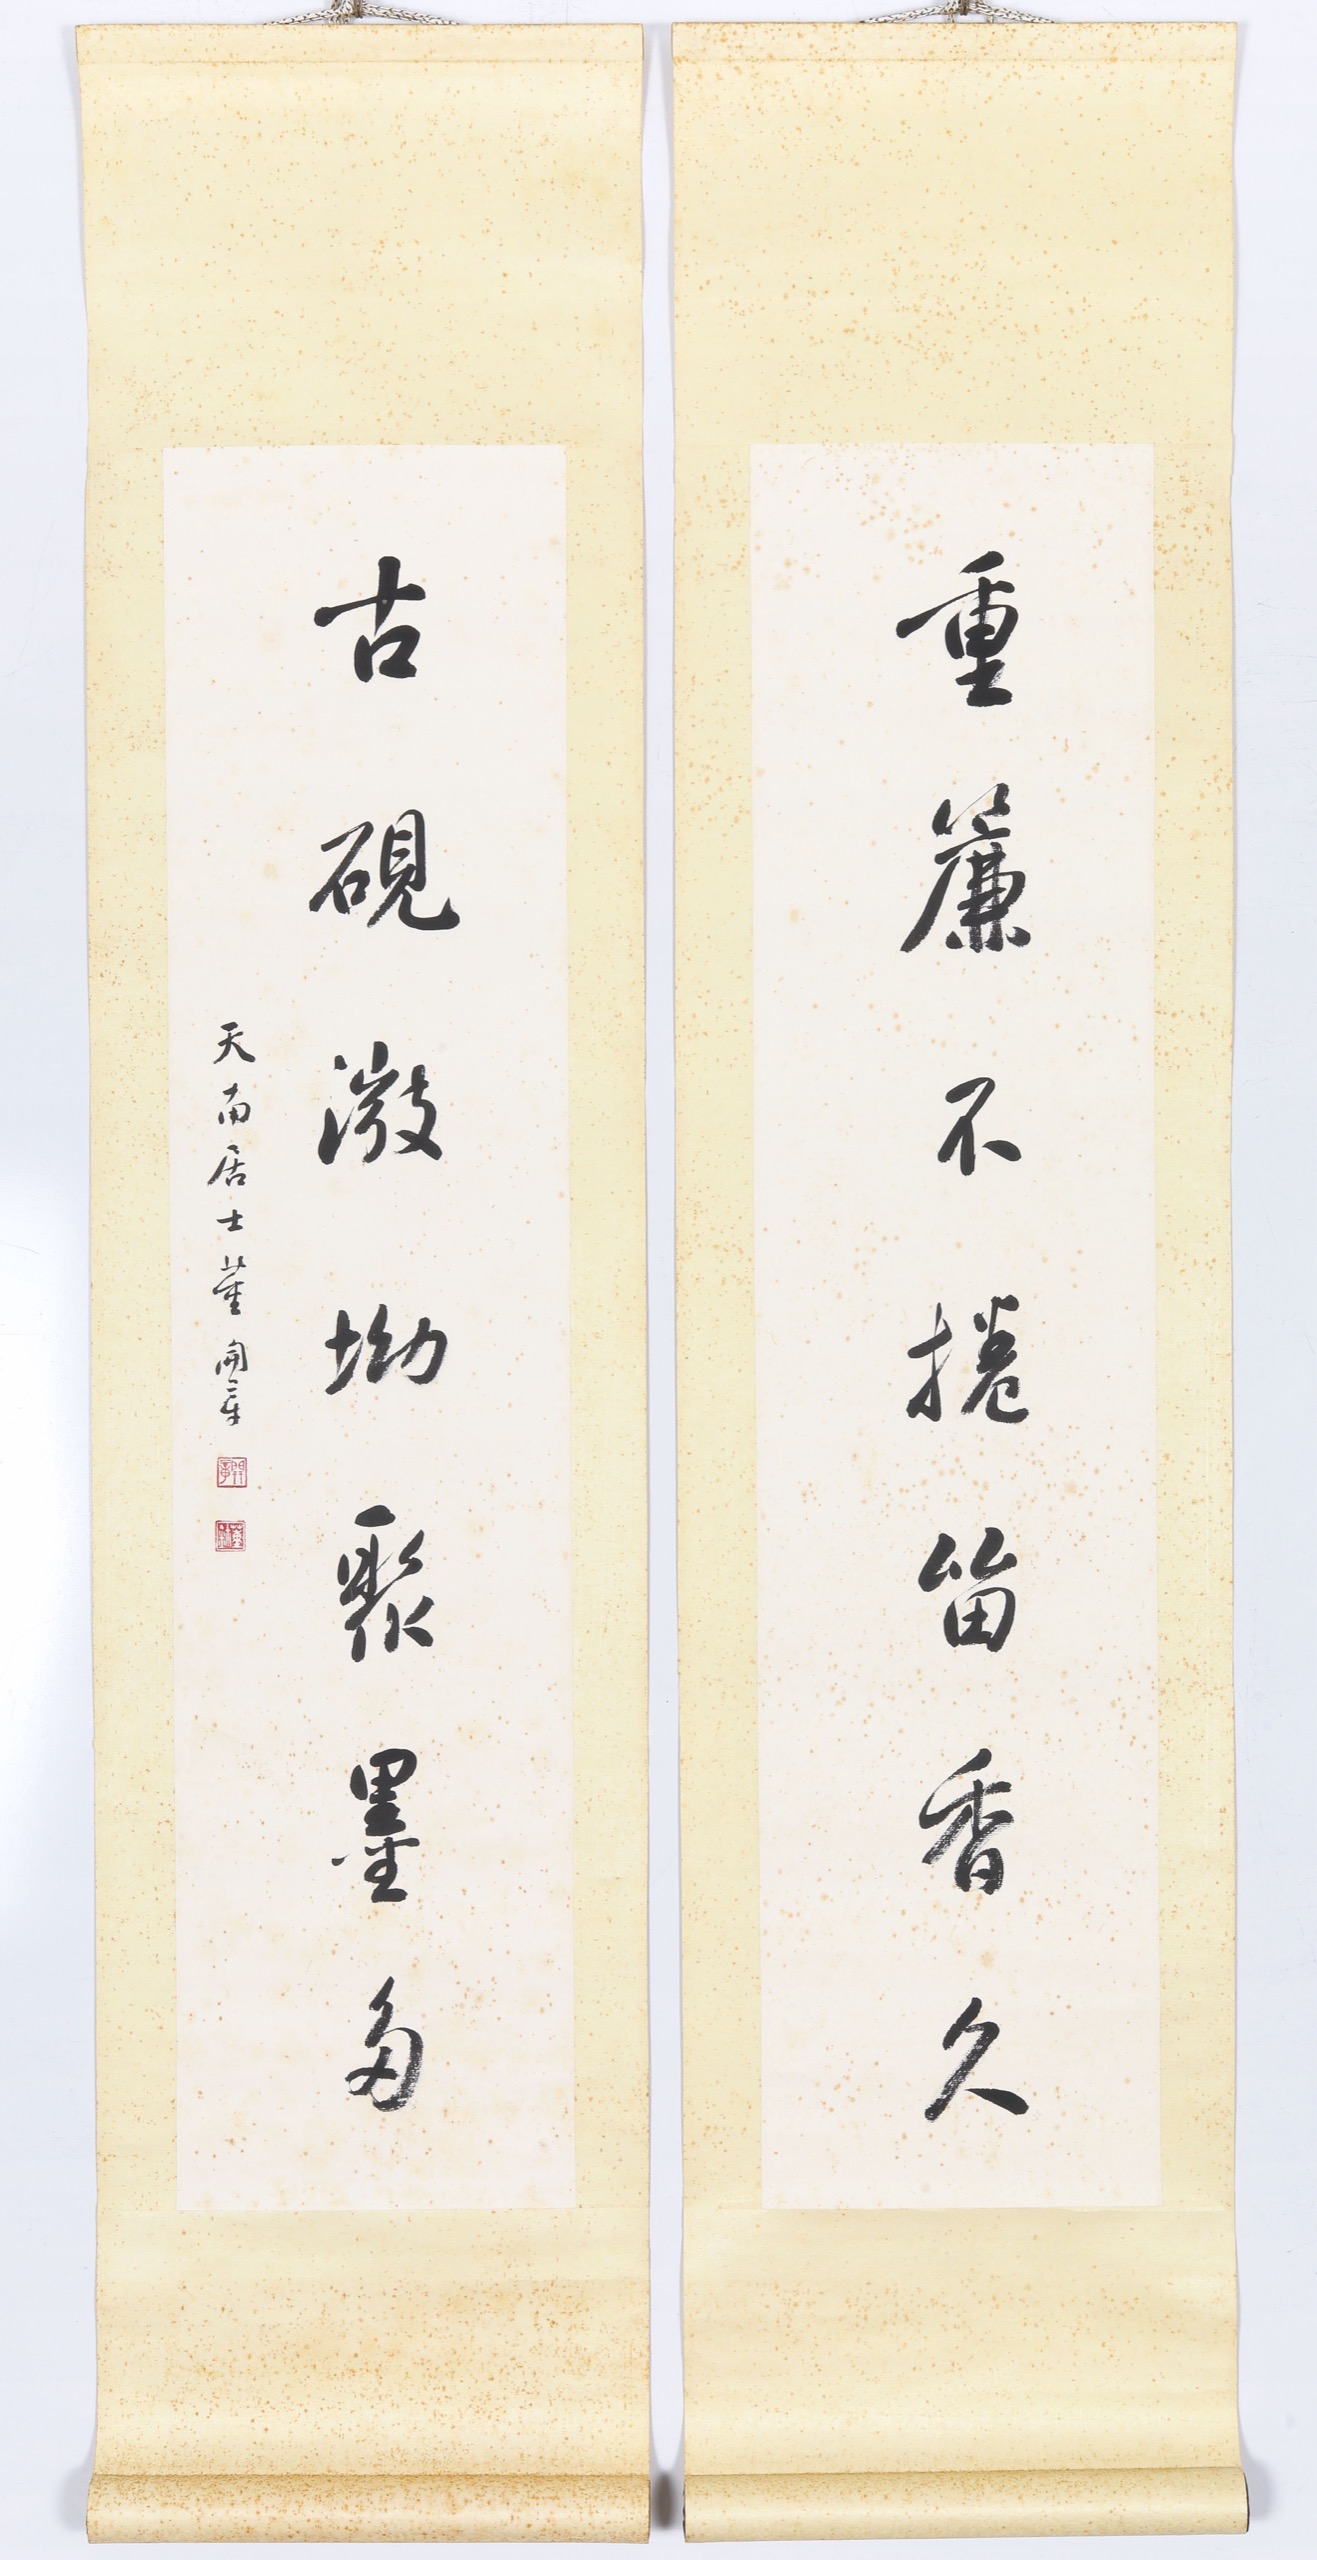 重簾不捲留香久
古硯微坳聚墨多
天南居士董開章
開章